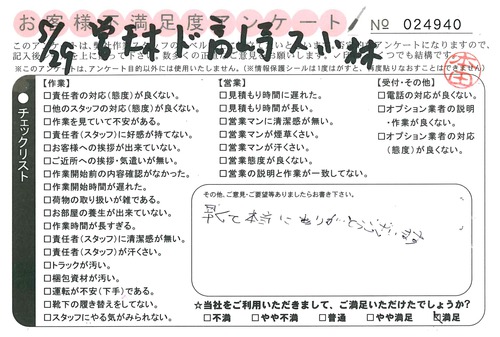 お客様不満足度アンケート
№ 024940
チェックリスト
【作業】
□責任者の対応(態度)が良くない。
□他のスタッフの対応(態度)が良くない。
□作業を見ていて不安がある。
□責任者(スタッフ)に好感が持てない。
□お客様への挨拶が出来ていない。
□ご近所への挨拶・気遣いが無い。
□作業開始前の内容確認がなかった。
□作業開始時間が遅れた。
□荷物の取り扱いが雑である。
□お部屋の養生が出来ていない。
□作業時間が長すぎる。
□責任者(スタッフ)に清潔感が無い。
□責任者(スタッフ)が汗くさい。
□トラックが汚い。
□梱包資材が汚い。
□運転が不安(下手)である。
□靴下の履き替えをしてない。
□スタッフにやる気がみられない。
【営業】
□見積もり時間に遅れた。
□見積もり時間が長い。
□営業マンに清潔感が無い。
□営業マンが煙草くさい。
□営業マンが汗くさい。
□営業態度が良くない。
□営業の説明と作業が一致してない。
【受付・その他】
□電話の対応が良くない。
□オプション業者の説明・作業が良くない。
□オプション業者の対応(態度)が良くない。
その他、ご意見・ご要望等ありましたらお書き下さい。
早くて本当にありがとうございます
☆当社をご利用いただきまして、ご満足いただけたでしょうか？
□不満 □やや不満 □普通 □やや満足 ☑満足